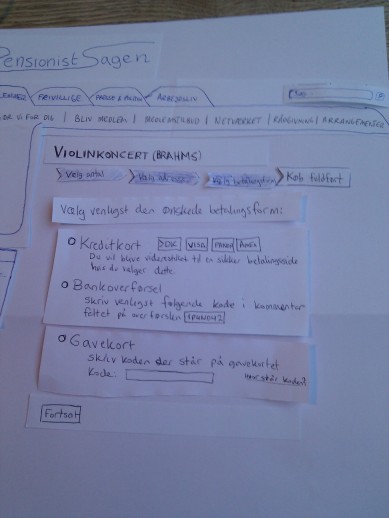 PENSIONIST SAGEN
FRIVILLIGE
ARBEJDSLIV
VI FOR DIG | BLIV MEDLEM | MEDLEMSTILBUD | NETVÆRKET | RÅDGIVNING | ARRANGEMENTER
VIOLINKONCERT (BRAHMS)
Vælg antal
Vælg betalingsform
Køb fuldført
Vælg venligst den ønskede betalingsform:
Kreditkort DK VISA
Du vil blive viderestillet til en sikker betalingsside
hvis du vælger dette.
Bankoverførsel
Skriv venligst følgende kode i kommentar
feltet på overførslen
Gavekort
Skriv koden der står på gavekortet
Kode: Hvor står koden?
Fortsæt